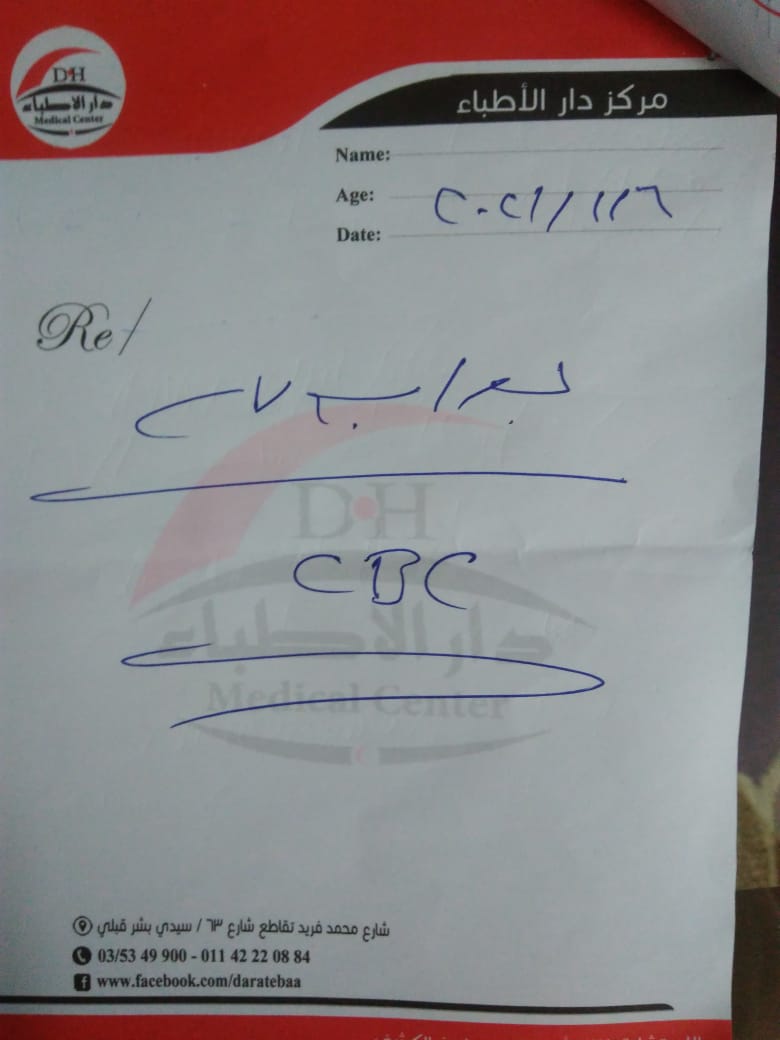 D•H
دار الأطباء
Medical Center
مركز دار الأطباء
Name:
Age:
٢٠٢١/١/١٦
Date:
Re/
CBC
D•H
دار الأطباء
Medical Center
شارع محمد فريد تقاطع شارع ٦٣ / سيدي بشر قبلي
03/53 49 900 - 011 42 22 08 84
www.facebook.com/daratebaa